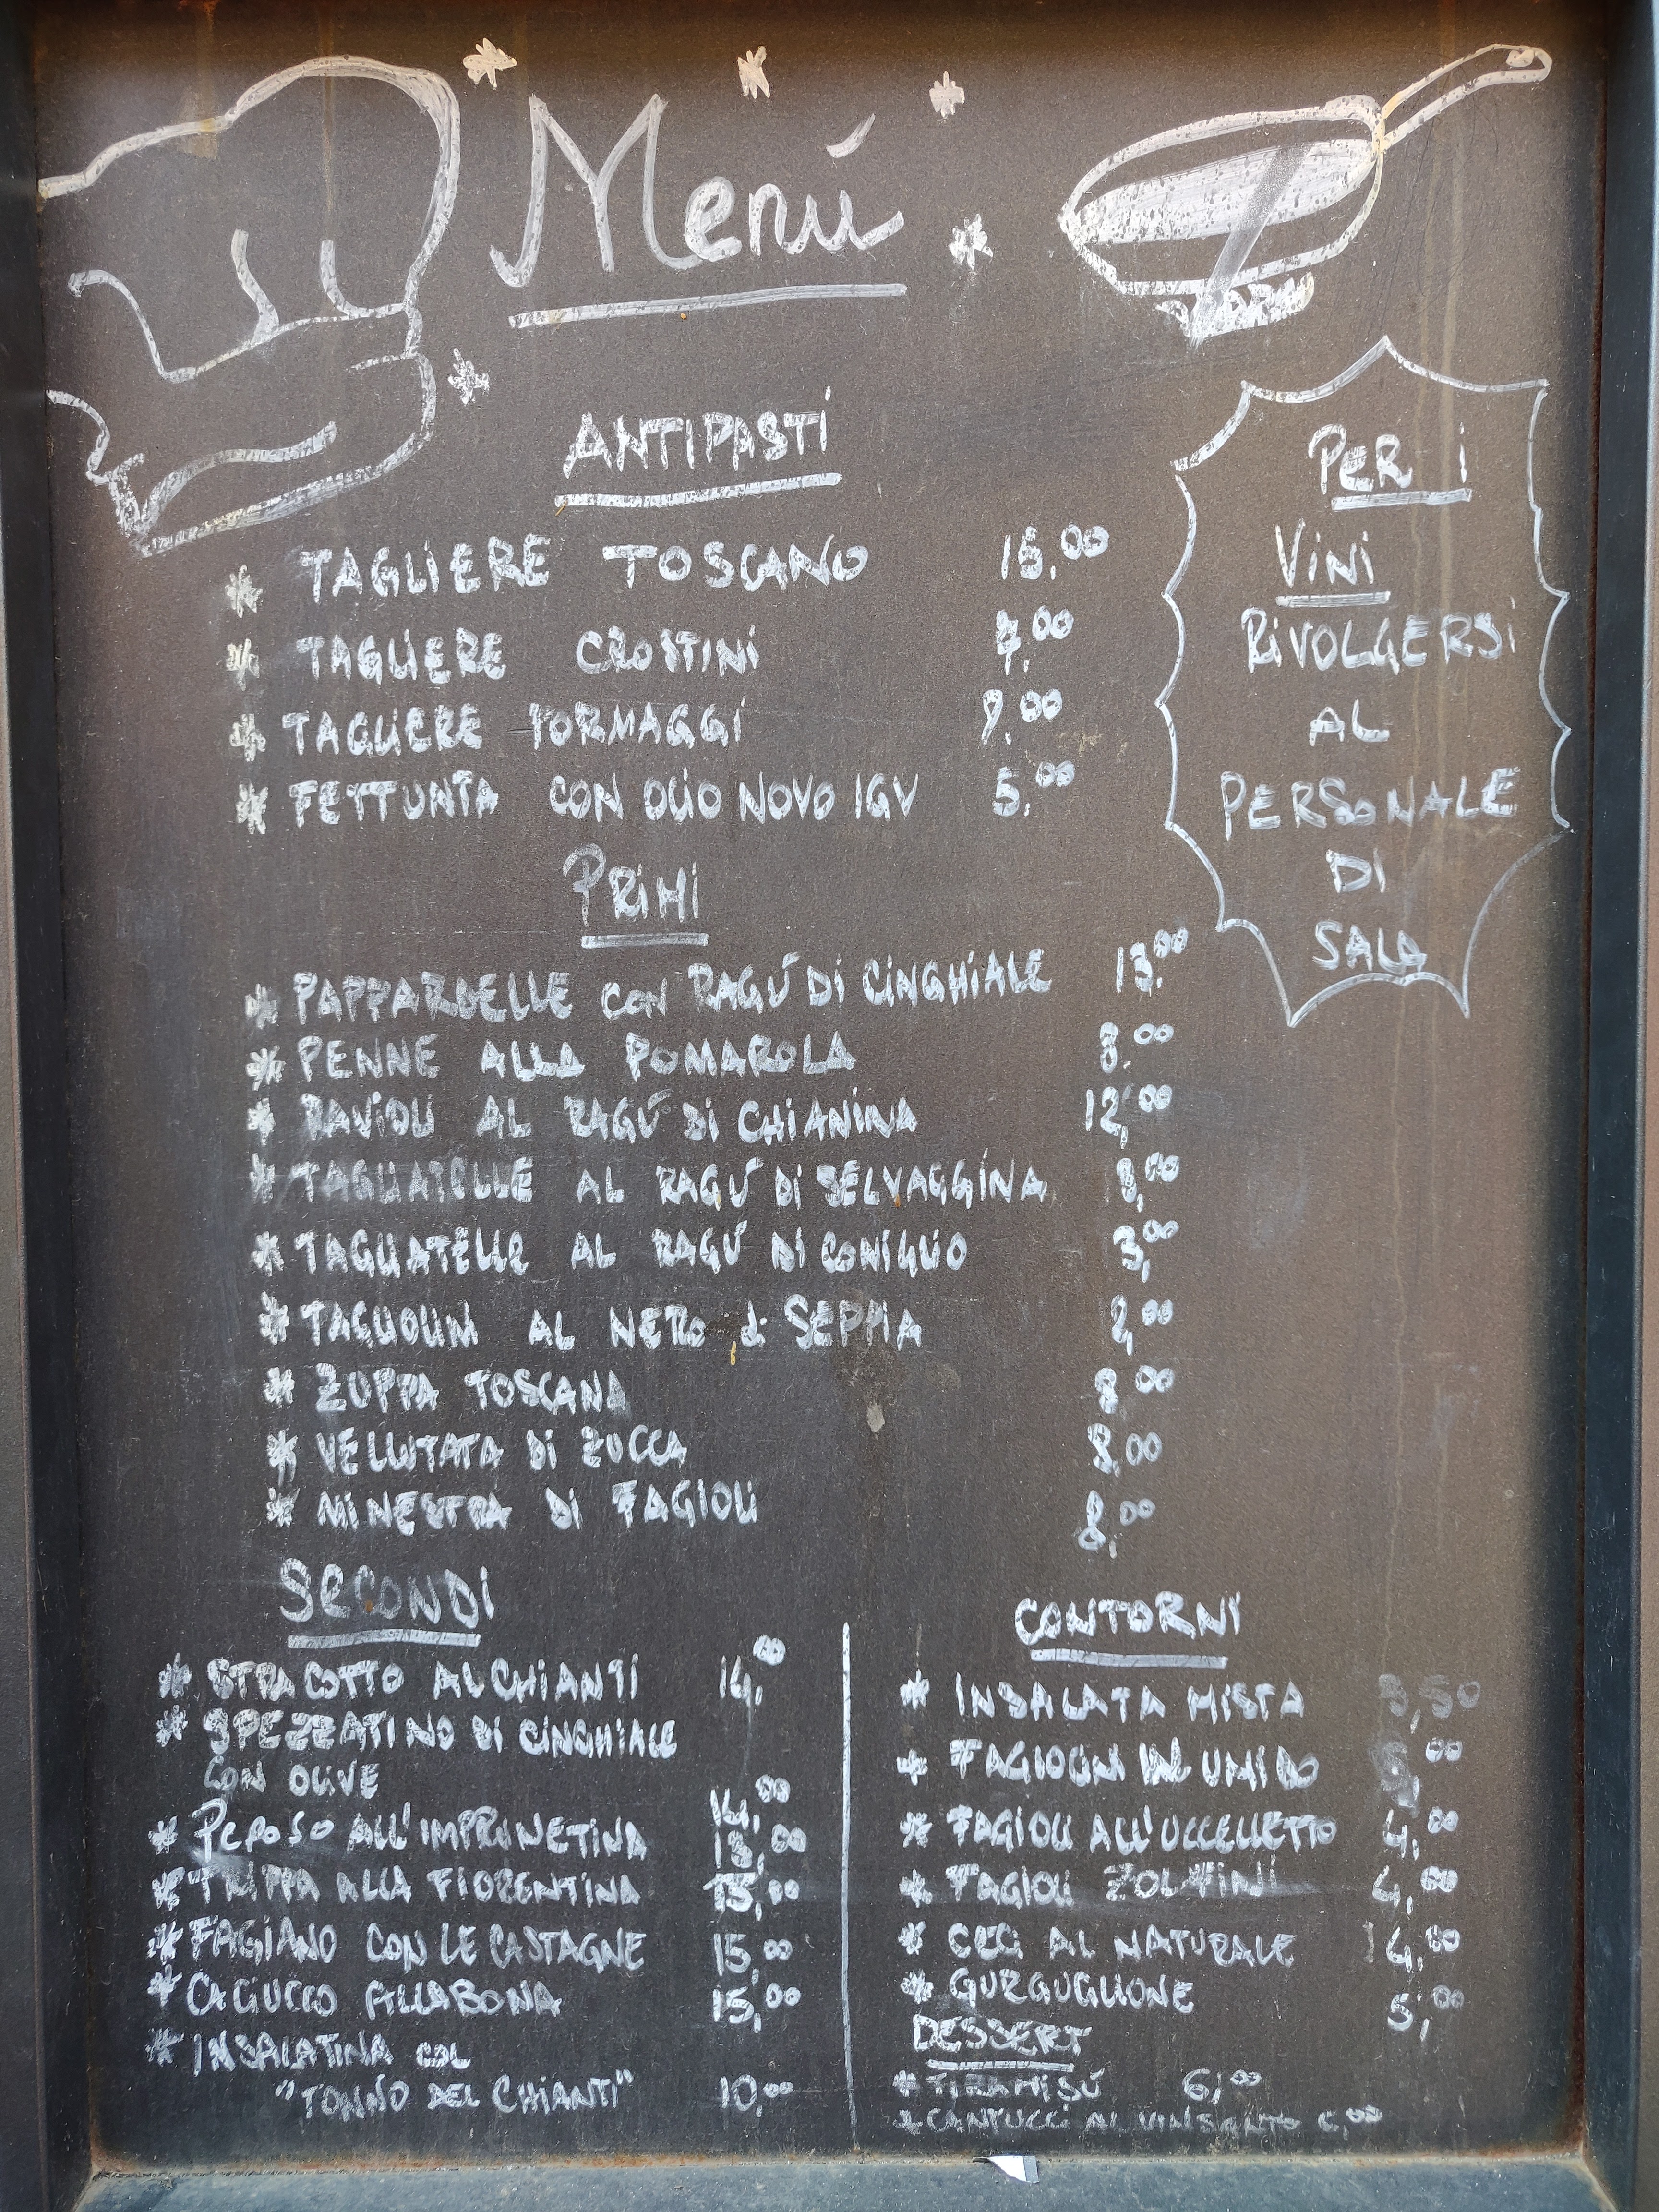 Menú
ANTIPASTI
* TAGLIERE TOSCANO 15,00
* TAGLIERE CROSTINI 7,00
* TAGLIERE FORMAGGI 9,00
* FETTUNTA CON OLIO NOVO IGV 5,00
PER I
VINI
RIVOLGERSI
AL
PERSONALE
DI
SALA
PRIMI
* PAPPARDELLE CON RAGÚ DI CINGHIALE 13,00
* PENNE ALLA POMAROLA 8,00
* RAVIOLI AL RAGÚ DI CHIANINA 12,00
* TAGLIATELLE AL RAGÚ DI SELVAGGINA
* TAGLIATELLE AL RAGÚ DI CONIGLIO
* TAGLIOLINI AL NERO di SEPPIA
* ZUPPA TOSCANA 8,00
* VELLUTATA DI ZUCCA 8,00
* MINESTRA DI FAGIOLI 8,00
SECONDI
* STRACOTTO AL CHIANTI 14,00
* SPEZZATINO DI CINGHIALE
CON OLIVE 14,00
* PEPOSO ALL'IMPRUNETINA 13,00
* TRIPPA ALLA FIORENTINA 15,00
* FAGIANO CON LE CASTAGNE 15,00
* CACIUCCO 15,00
* INSALATINA COL
"TONNO DEL CHIANTI" 10,00
CONTORNI
* INSALATA MISTA 3,50
* FAGIOLINI IN UMIDO
* FAGIOLI ALL'UCCELLETTO 4,00
* FAGIOLI ZOLFINI 4,00
* CECI AL NATURALE 4,00
* GURGUGLIONE 5,00
DESSERT
* TIRAMISÚ 6,00
* CANTUCCI AL VINSANTO 6,00